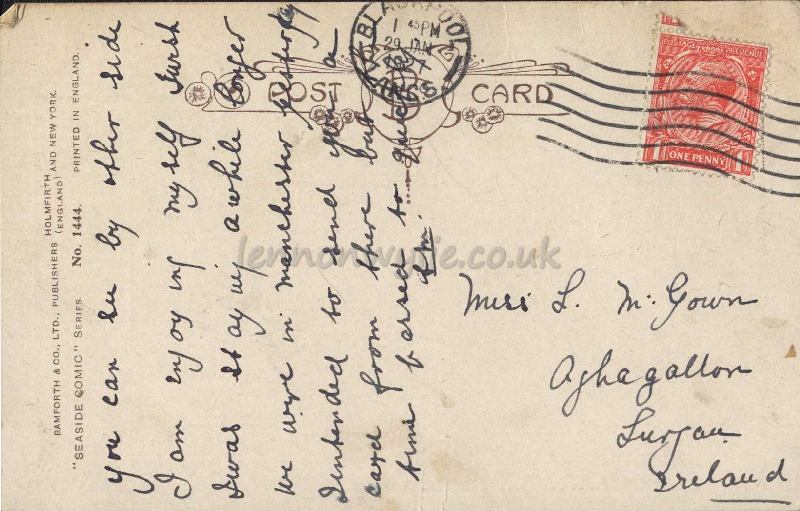 BAMFORTH & CO., LTD., PUBLISHERS HOLMFIRTH (ENGLAND) AND NEW YORK.
"SEASIDE COMIC" SERIES No. 1444. PRINTED IN ENGLAND.
POST CARD
BLACKPOOL
1 45 PM
29 JAN
POSTAGE REVENUE
ONE PENNY
you can see by other side
I am enjoying myself I wish
I was staying awhile longer
we were in manchester yesterday
Intended to send you a
card from there but
time passed to quick
Miss L. McGown
Aghagallon
Lurgan
Ireland
lennonwylie.co.uk